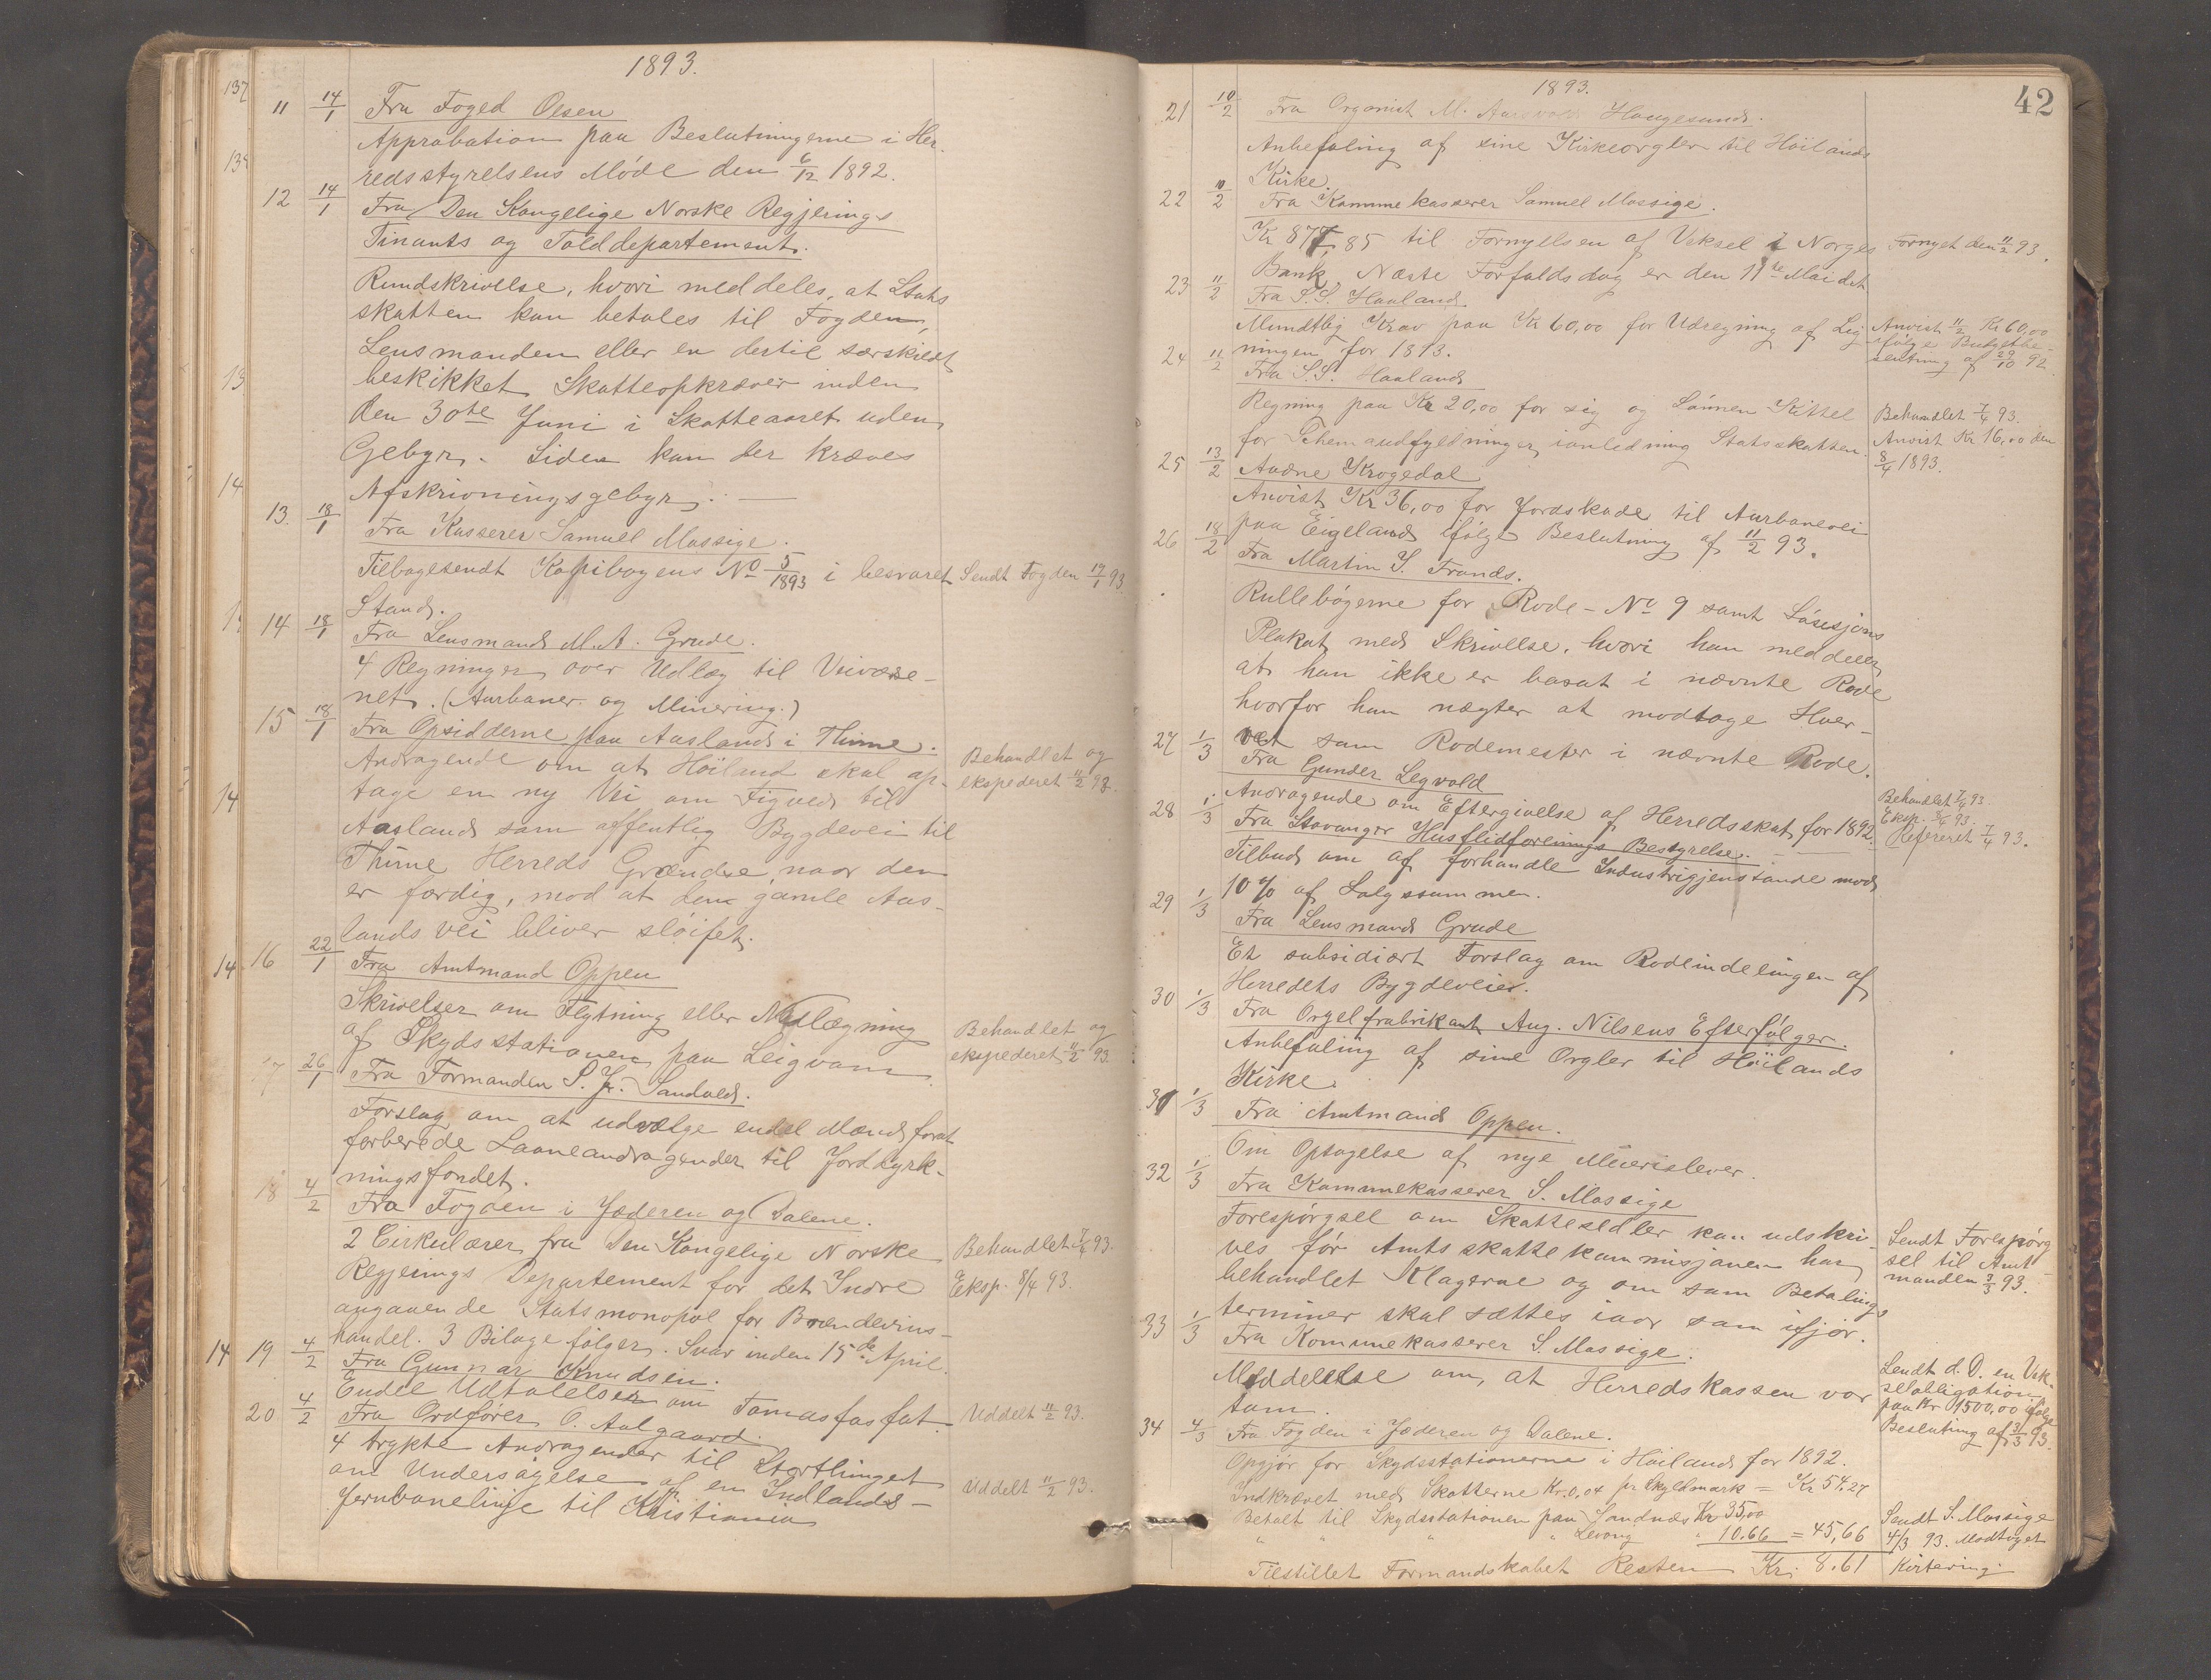 1893.
11 14/1 Fra Foged Olsen
Approbation paa Beslutningerne i Her-
redsstyrelsens Møde den 6/12 1892.
12 14/1 Fra Den Kongelige Norske Regjerings
Finants og Tolddepartement.
Rundskrivelse, hvori meddeles, at Stats
skatten kan betales til Fogden,
Lensmanden eller en dertil særskildt
beskikket Skatteopkræver inden
den 30te Juni i Skatteaaret uden
Gebyr. Siden kan der kræves
Afskrivningsgebyr. —
13. 18/1 Fra Kasserer Samuel Mossige.
Tilbagesendt Kopibogens No 5/1893 i besvaret Sendt Fogden 19/1 93
Stand.
14 18/1 Fra Lensmand M. A. Grude.
4 Regninger over Udlæg til Veivæse-
net. (Aurbaner og Minering.)
15 18/1 Fra Opsidderne paa Aasland i Thime.
Andragende om at Høiland skal op- Behandlet og
tage en ny Vei om Figved til ekspederet 11/2 93.
Aasland som offentlig Bygdevei til
Thime Herreds Grændse, naar den
er færdig, mod at den gamle Aas-
lands vei bliver sløifet.
16 22/1 Fra Amtmand Oppen
Skrivelser om Flytning eller Nedlægning Behandlet og
af Skydsstationen paa Leigvam ekspederet 11/2 93.
17 26/1 Fra Formanden S. Sandvold.
Forslag om at udvælge endel Mænd forat
forberede Laaneandragender til Jorddyrk-
ningsfondet.
18 4/2 Fra Fogden i Jæderen og Dalene.
2 Cirkulærer fra Den Kongelige Norske Behandlet 7/4 93.
Regjerings Departement for det Indre Eksp. 8/4 93.
angaaende Statsmonopol for Brændevins-
handel. 3 Bilage følger. Svar inden 15de April.
14 19 4/2 Fra Gunnar Knudsen.
Endel Udtalelser om Tomasfosfat. Uddelt 11/2 93.
20 4/2 Fra Ordfører O. Aalgaard.
4 trykte Andragender til Storthinget
om Undersøgelse af en Indlands- Uddelt 11/2 93.
jernbanelinje til Kristiania
1893. 42
21 10/2 Fra Organist M. Haugesund.
Anbefaling af sine Kirkeorgler til Høilands
Kirke.
22 10/2 Fra Kommunekasserer Samuel Mossige.
Kr 85 til Fornyelsen af Veksel i Norges Fornyet den 11/2 93.
Bank. Næste Forfaldsdag er den 11te Mai dt.
23 11/2 Fra S. S. Haaland.
Mundtlig Krav paa Kr 60,00 for Udregning af Lig- Anvist 11/2 Kr 60,00
ningen for 1893. ifølge Budgetbe-
slutning af 29/10 92.
24 11/2 Fra S. S. Haaland
Regning paa Kr 20,00 for sig og Sønnen Kittel Behandlet 7/4 93.
for Schemaudfyldninger ianledning Statsskatten. Anvist Kr 16,00 den
8/4 1893.
25 13/2 Audne Krogedal
Anvist Kr 36,00 for Jordskade til Aurbanevei
paa Eigeland ifølge Beslutning af 11/2 93.
26 18/2 Fra Martin S.
Rullebøgerne for Rode-No 9 samt
Plakat med Skrivelse, hvori han meddeler
at han ikke er bosat i nævnte Rode
hvorfor han nægter at modtage Hver-
vet som Rodemester i nævnte Rode.
27 1/3 Fra Gunder Legvold
Andragende om Eftergivelse af Herredsskat for 1892. Behandlet 7/4 93.
Eksp. 8/4 93.
28 1/3 Fra Stavanger Husflidforenings Bestyrelse. — Refereret 7/4 93.
Tilbud om at forhandle Industrigjenstande mod
10 % af Salgssummen.
29 1/3 Fra Lensmand Grude
Et subsidiært Forslag om Rodeindelingen af
Herredets Bygdeveier.
30 1/3 Fra Orgelfabrikant Aug. Nilsens Efterfølger.
Anbefaling af sine Orgler til Høilands
Kirke.
31 1/3 Fra Amtmand Oppen.
Om Optagelse af nye Meierielever.
32 1/3 Fra Kommunekasserer S. Mossige
Forespørgsel om Skattesedler kan udskri- Sendt Forespørg
ves før Amtsskattekommisjonen har sel til Amt-
behandlet Klagerne og om som Betalings manden 3/3 93.
terminer skal sættes iaar som ifjor.
33 1/3 Fra Kommunekasserer S. Mossige.
Meddelelse om, at Herredskassen var Sendt d. O. en Vek-
tom. selobligation
paa Kr 1500,00 ifølge
Beslutning af 3/3 93.
34 4/3 Fra Fogden i Jæderen og Dalene.
Opgjør for Skydsstationerne i Høiland for 1892.
Indkrævet med Skatterne Kr. 0,04 pr Skyldmark = Kr 54.27
Betalt til Skydsstationen paa Sandnæs Kr 35,00 Sendt S. Mossige
" " " " 10.66 = 45,66 4/3 93. Modtaget
Tilstillet Formandskabet Resten Kr. 8.61 Kvittering.